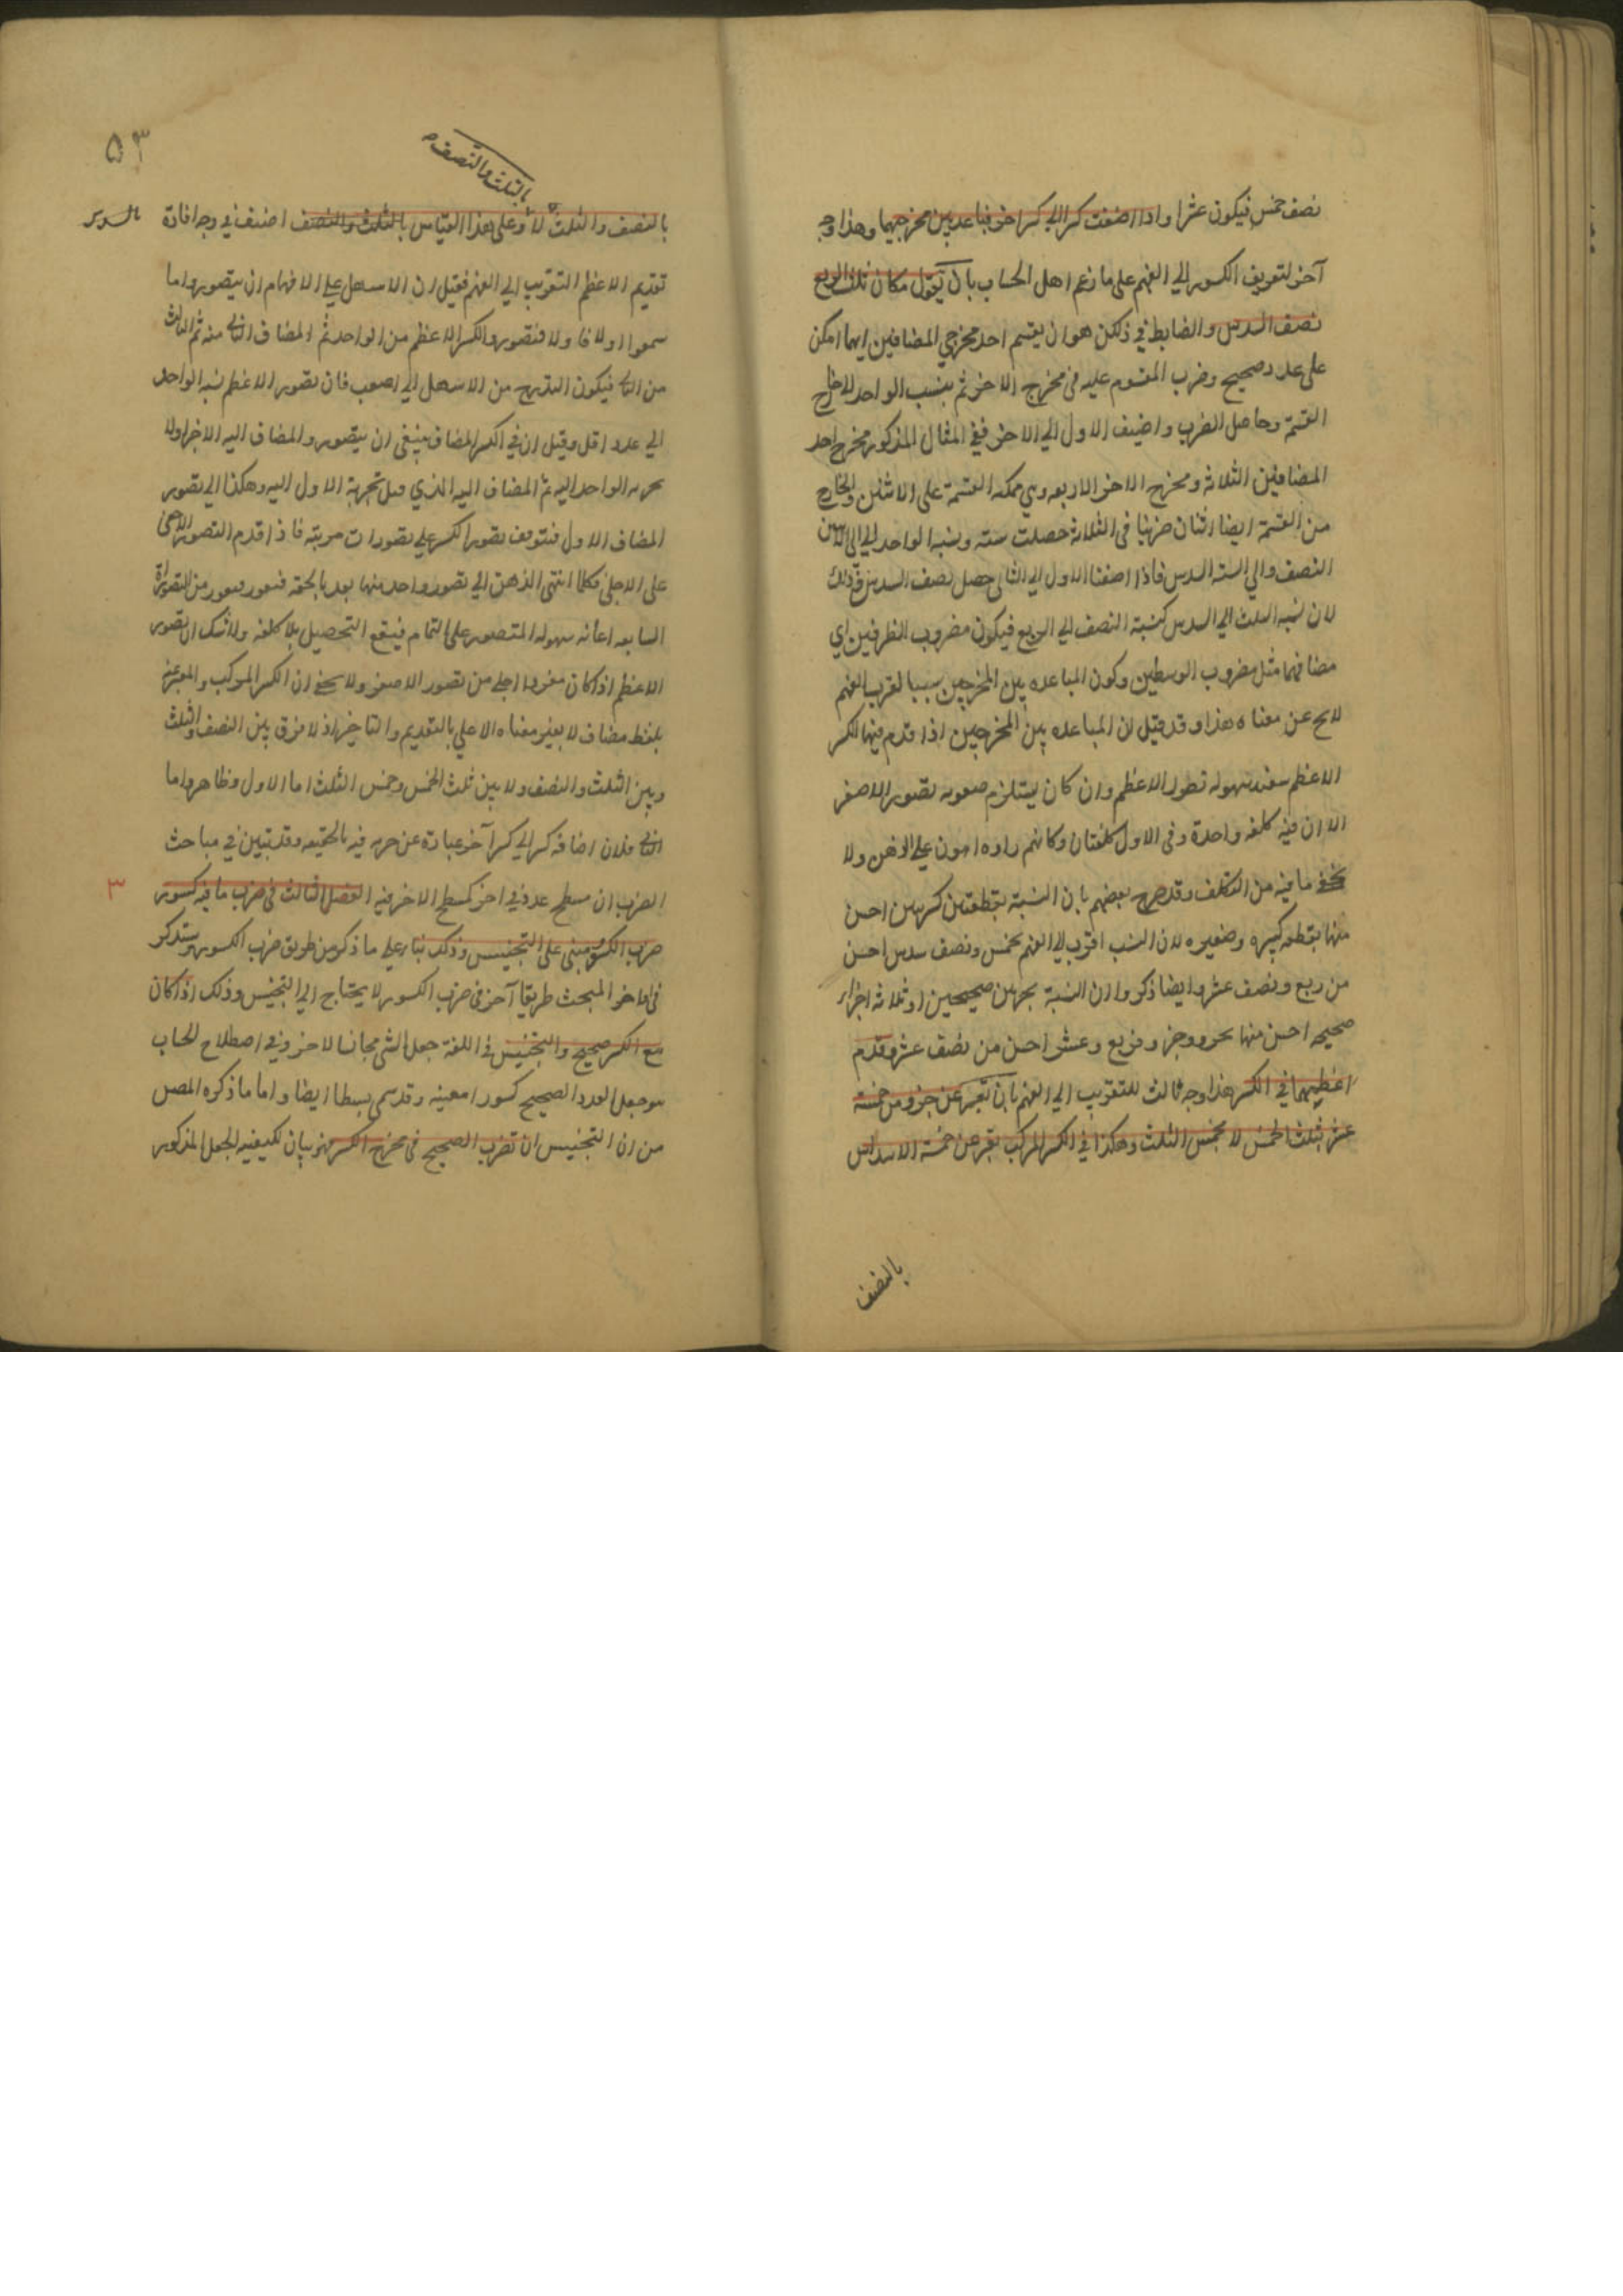 نصف خمس فيكون عشرا واذا اضفت كسرا الى كسر اخر فباعد بين مخرجيهما وهذا وجه
آخر لتعريف الكسور الي الفهم على ما زعم اهل الحساب بان يقول مكان ثلث الربع
نصف السدس والضابط في ذلك هو ان يقسم احد مخرجي المضافين ايهما امكن
على عدد صحيح وضرب المقسوم عليه في مخرج الاخر ثم ينسب الواحد الى خارج
القسمة وحاصل الضرب واضيف الاول الي الاخر ففي المثال المذكور مخرج احد
المضافين الثلاثة ومخرج الاخر الاربعه وهي ممكنه القسمة على الاثنين والخارج
من القسمة ايضا اثنان ضربنا في الثلاثة حصلت سته ونسبه الواحد الي الاثنين
النصف والي السته السدس فاذا اضفنا الاول الي الثاني حصل نصف السدس وذلك
لان نسبه الثلث الي السدس كنسبة النصف الي الربع فيكون مضروب الطرفين اي
مضافهما مثل مضروب الوسطين وكون المباعده بين المخرجين سببا لقرب الفهم
لا يخ عن معناه هذا وقد قيل ان المباعده بين المخرجين اذا قدم فيها الكسر
الاعظم سهوله تصور الاعظم وان كان يستلزم صعوبه تصور الاصغر
الا ان فيه كلفه واحدة وفي الاول كلفتان وكانهم راوه اهون على الذهن ولا
يخفى ما فيه من التكلف وقد صرح بعضهم بان النسبة بقطعتين كبيرتين احسن
منها بقطعه كبيره وصغيره لان النسب اقرب الى الفهم بخمس ونصف سدس احسن
من ربع ونصف عشر وايضا ذكروا ان النسبة بجزئين صحيحين او ثلاثه اجزاء
صحيحه احسن منها بجزو وجزو فربع وعشر احسن من نصف عشر وقدم
اعظمهما في الكسر هذا وجه ثالث للتقريب الي الفهم بان تعبر عن جزو من خمسة
عشر بثلث الخمس لا بخمس الثلث وهكذا في الكسر المركب تعبر عن خمسة الاسداس
بالنصف
٥٣
بالثلث والنصف
بالنصف والثلث لا وعلى هذا القياس بالثلث والنصف اختلف في وجه افادة
بالسدس
تقديم الاعظم التقريب الي الفهم فقيل ان الاسهل على الافهام ان يتصوروا ما
سمعوا اولا فاولا فتصور الكسر الاعظم من الواحد ثم المضاف الثاني منه ثم الثالث
من الثاني فيكون التدريج من الاسهل الي اصعب فان تصور الاعظم نسبه الواحد
الي عدد اقل وقيل ان في الكسر المضاف ينبغي ان يتصور المضاف اليه الاخر اولا
الواحد اليه ثم المضاف اليه الذي قبل تجزية الاول اليه وهكذا الي تصور
المضاف الاول فتتوقف تصور الكسر على تصورات مرتبه فاذا قدم التصور الاخفى
على الاجلى فكلما انتهى الذهن الي تصور واحد منها بعد بالحقه
السابعه اعانه سهوله المتصور على التمام فيقع التحصيل بلا كلفه ولا شك ان تصور
الاعظم اذا كان مفردا اجلى من تصور الاصغر ولا يخفى ان الكسر المركب والمعبر عنه
بلفظ مضاف لا يغير معناه الاعلى بالتقديم والتاخير اذ لا فرق بين النصف والثلث
وبين الثلث والنصف ولا بين ثلث الخمس وخمس الثلث اما الاول فظاهر واما
الثاني فلان اضافه كسر الي كسر آخر عبارة عن ضربه فيه بالحقيقه وقد تبين في مباحث
الضرب ان مسطح عدد في اخر كمسطح الاخر فيه الفصل الثالث في ضرب ما فيه كسور
٣
ضرب الكسور مبني على التجنيس وذلك بناء على ما ذكر من طريق ضرب الكسور وستذكر
في اخر المبحث طريقا آخر في ضرب الكسور لا يحتاج الي التجنيس وذلك اذا كان
مع الكسر صحيح والتجنيس في اللغة جعل الشي مجانسا لاخر وفي اصطلاح الحساب
هو جعل العدد الصحيح كسورا معينه وقد سمى بسطا ايضا واما ما ذكره المص
من ان التجنيس ان تضرب الصحيح في مخرج الكسر فهو بيان لكيفيه الجعل المذكور